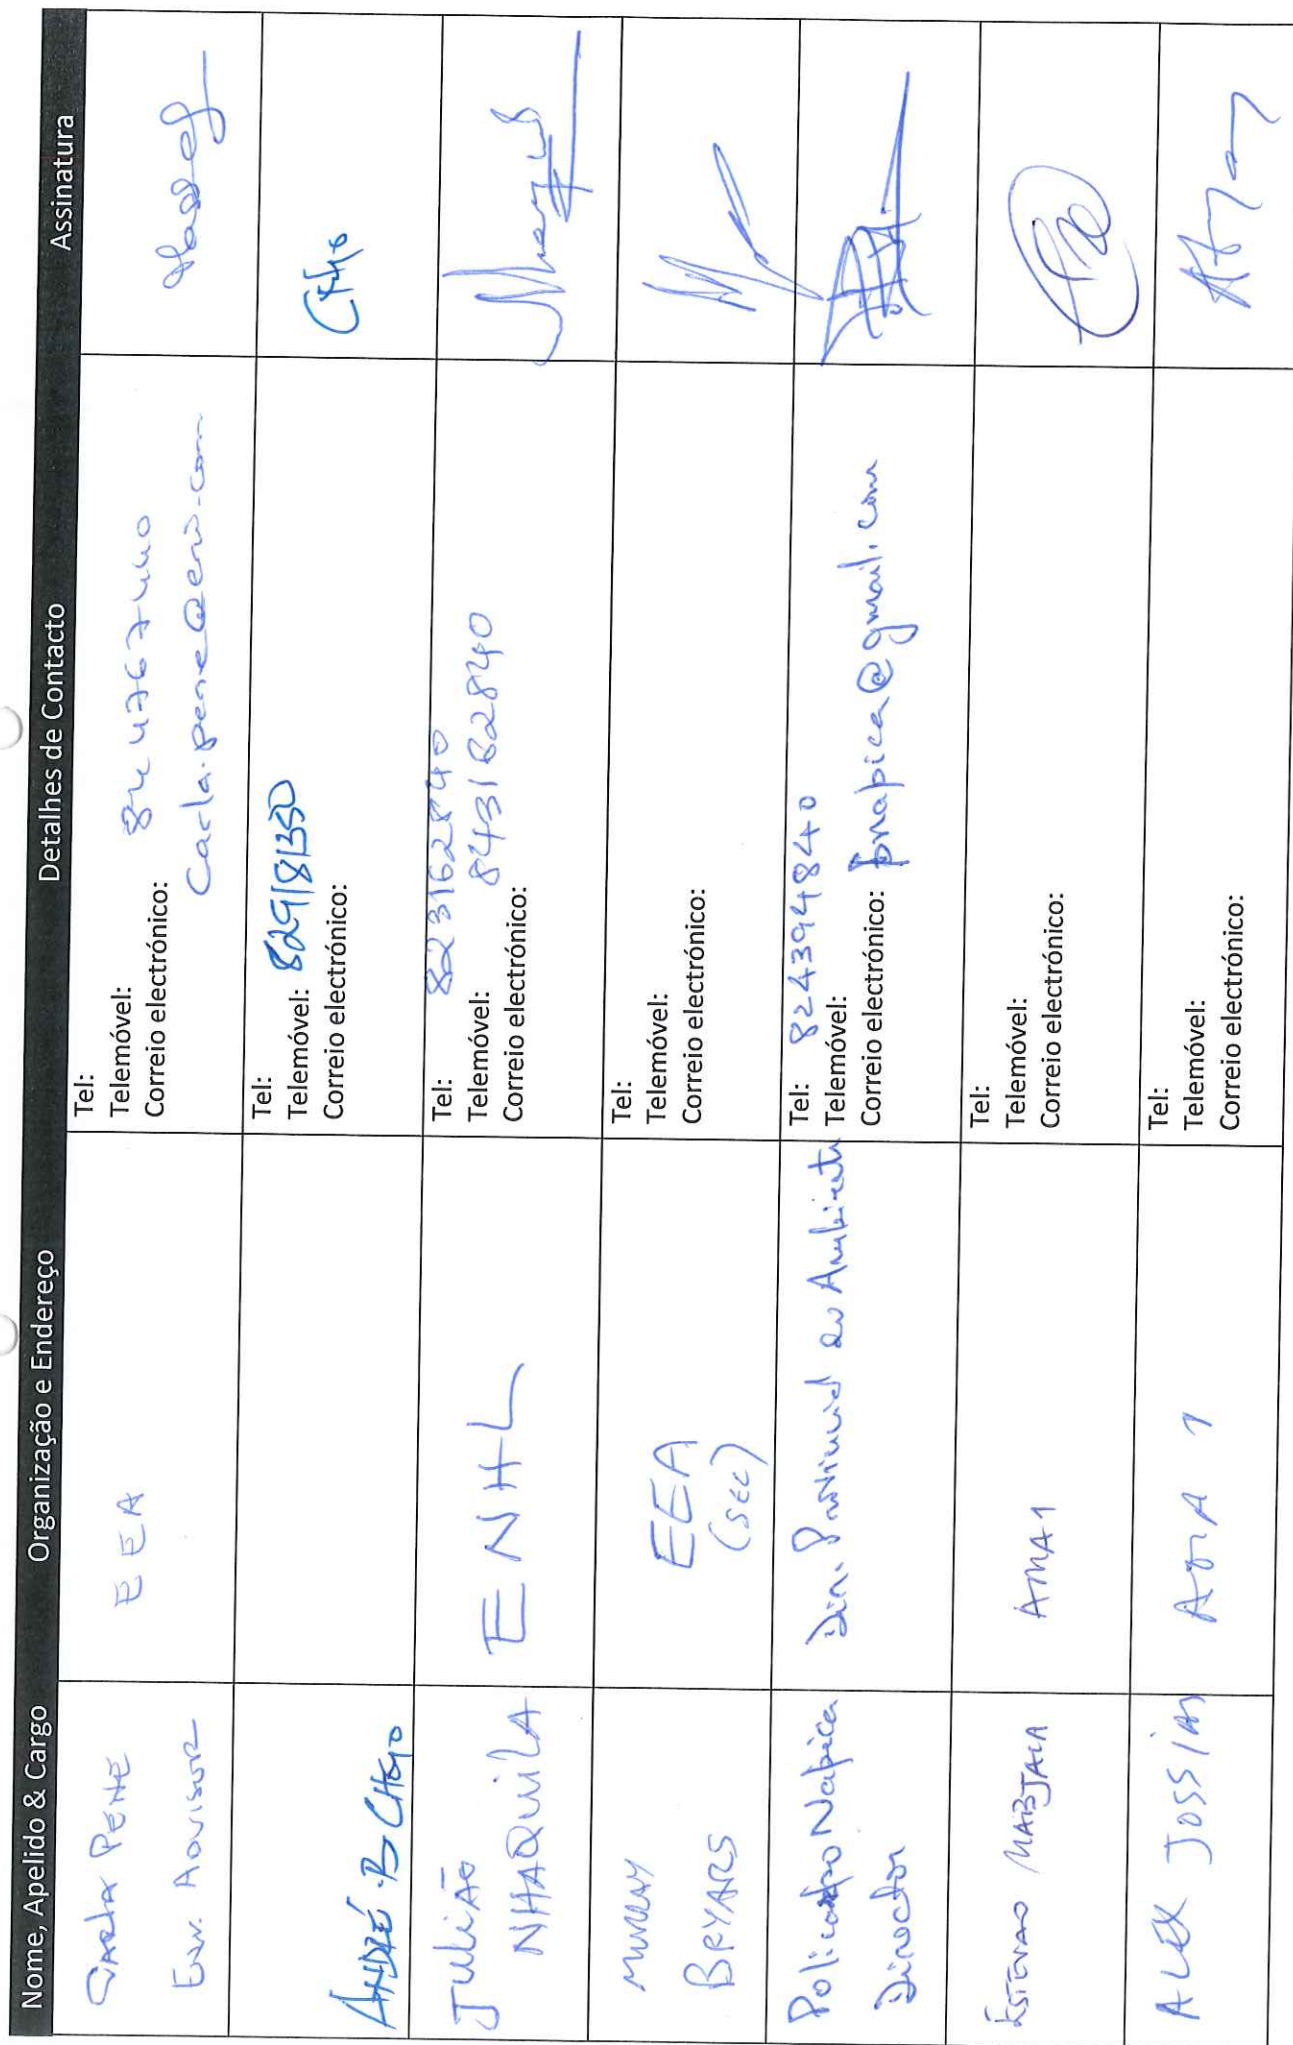 Nome, Apelido & Cargo Organização e Endereço Detalhes de Contacto Assinatura
CARLA PENE
ENV. ADVISOR
EEA
Tel:
Telemóvel: 844767440
Correio electrónico:
Carla.pene@eni.com
ANDRÉ .B CHEYO
Tel:
Telemóvel: 829181350
Correio electrónico:
JULIÃO
NHAQUILA
ENHL
Tel: 823162840
Telemóvel: 843162840
Correio electrónico:
MURRAY
BRYARS
EEA
(SEC)
Tel:
Telemóvel:
Correio electrónico:
Policarpo Napica
Director
Dir. Provincial do Ambiente
Tel: 824394840
Telemóvel:
Correio electrónico: pnapica@gmail.com
ESTEVAO MABJAIA
AMA1
Tel:
Telemóvel:
Correio electrónico:
ALEX JOSSIAS
AMA 1
Tel:
Telemóvel:
Correio electrónico: